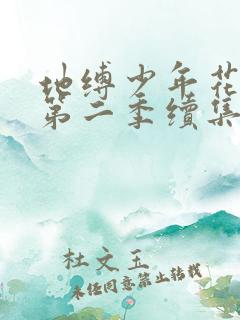 地缚少年花
第二季续集
杜文玉
未经同意禁止转载